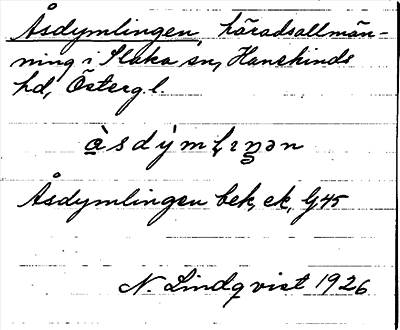 Åsdymlingen, häradsallmän-
ning i Slaka sn, Hanekinds
hd, Östergl.
å̱̀sdý̀mlɩŋən
Åsdymlingen bek, ek, G45
N. Lindqvist 1926